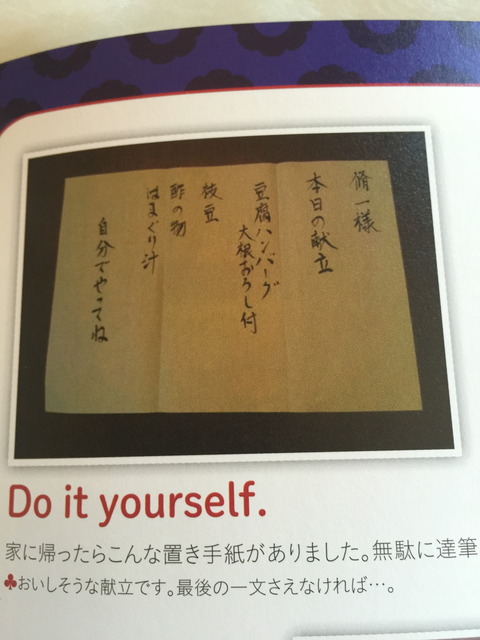 脩一様
本日の献立
豆腐ハンバーグ
大根おろし付
枝豆
酢の物
はまぐり汁
自分でやってね
Do it yourself.
家に帰ったらこんな置き手紙がありました。無駄に達筆
♣おいしそうな献立です。最後の一文さえなければ…。